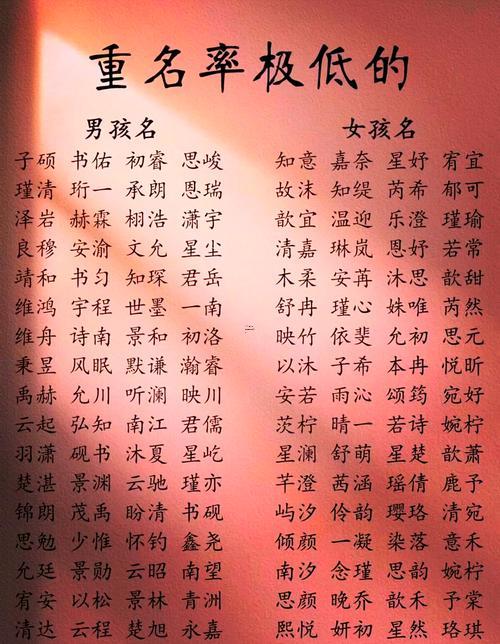 重名率极低的
男孩名 女孩名
子硕 书佑 初睿 思峻 知意 嘉奈 星妤 宥宜
瑾清 珩一 承朗 恩瑞 故沫 知缇 芮希 郁可
泽岩 赫霖 栩浩 潇宇 歆宜 温迎 乐澄 瑾瑜
良穆 安渝 文允 星尘 清嘉 琳岚 恩妤 若常
靖和 书匀 知琛 君岳 木柔 安苒 沐思 歆甜
维鸿 宇程 世墨 一南 舒冉 瑾心 姝唯 芮然
维舟 诗南 景和 初洛 映竹 依斐 允初 思元
秉昱 风眠 默谦 瀚睿 以沫 子希 本冉 悦昕
禹赫 允川 听澜 映川 安若 雨沁 颂筠 宛好
云起 弘知 南江 君儒 茨柠 晴一 若诗 婉柠
羽潇 砚书 沐夏 星屹 星澜 舒萌 星楚 歆萧
楚湛 景渊 云驰 瑾亦 芊澄 茜涵 瑶倩 鹿予
锦朗 茂禹 盼清 书砚 屿汐 伶韵 璎珞 清宛
思勉 少惟 怀钓 鑫尧 倾颜 一凝 染落 意禾
允廷 景勋 云昭 南望 南汐 念瑾 思韵 婉柠
宥安 以松 景林 青洲 思颜 晚乔 歆禾 予棠
清达 云程 楚旭 永嘉 熙悦 妍初 星然 珞琪